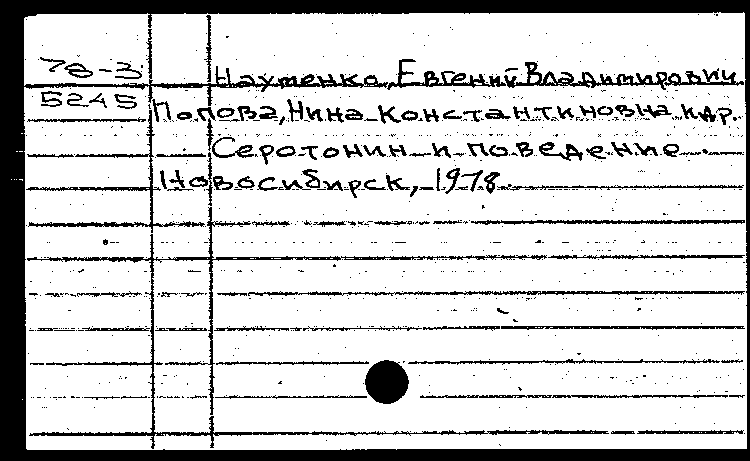 78-3
5245
Науменко, Евгений Владимирович
Попова, Нина Константиновна и др.
Серотонин и поведение.
Новосибирск, 1978.